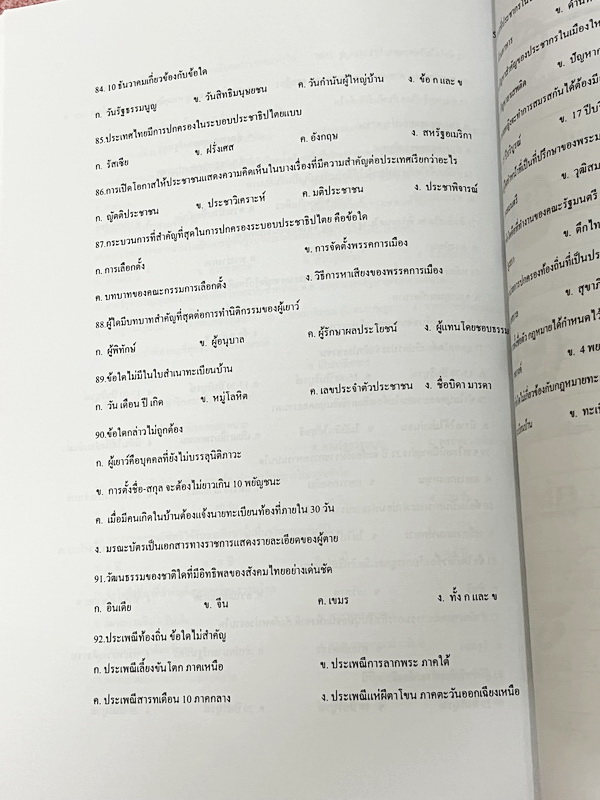 84. 10 ธันวาคมเกี่ยวข้องกับข้อใด
ก. วันรัฐธรรมนูญ ข. วันสิทธิมนุษยชน ค. วันกำนันผู้ใหญ่บ้าน ง. ข้อ ก และ ข
85.ประเทศไทยมีการปกครองในระบอบประชาธิปไตยแบบ
ก. รัสเซีย ข. ฝรั่งเศส ค. อังกฤษ ง. สหรัฐอเมริกา
86.การเปิดโอกาสให้ประชาชนแสดงความคิดเห็นในบางเรื่องที่มีความสำคัญต่อประเทศเรียกว่าอะไร
ก. ญัตติประชาชน ข. ประชาวิเคราะห์ ค. มติประชาชน ง. ประชาพิจารณ์
87.กระบวนการที่สำคัญที่สุดในการปกครองระบอบประชาธิปไตย คือข้อใด
ก. การเลือกตั้ง ข. การจัดตั้งพรรคการเมือง
ค. บทบาทของคณะกรรมการเลือกตั้ง ง. วิธีการหาเสียงของพรรคการเมือง
88.ผู้ใดมีบทบาทสำคัญที่สุดต่อการทำนิติกรรมของผู้เยาว์
ก. ผู้พิทักษ์ ข. ผู้อนุบาล ค. ผู้รักษาผลประโยชน์ ง. ผู้แทนโดยชอบธรรม
89.ข้อใดไม่มีในใบสำเนาทะเบียนบ้าน
ก. วัน เดือน ปี เกิด ข. หมู่โลหิต ค. เลขประจำตัวประชาชน ง. ชื่อบิดา มารดา
90.ข้อใดกล่าวไม่ถูกต้อง
ก. ผู้เยาว์คือบุคคลที่ยังไม่บรรลุนิติภาวะ
ข. การตั้งชื่อ-สกุล จะต้องไม่ยาวเกิน 10 พยัญชนะ
ค. เมื่อมีคนเกิดในบ้านต้องแจ้งนายทะเบียนท้องที่ภายใน 30 วัน
ง. มรณะบัตรเป็นเอกสารทางราชการแสดงรายละเอียดของผู้ตาย
91.วัฒนธรรมของชาติใดที่มีอิทธิพลของสังคมไทยอย่างเด่นชัด
ก. อินเดีย ข. จีน ค. เขมร ง. ทั้ง ก และ ข
92.ประเพณีท้องถิ่น ข้อใดไม่สำคัญ
ก. ประเพณีเลี้ยงขันโตก ภาคเหนือ ข. ประเพณีการลากพระ ภาคใต้
ค. ประเพณีสารทเดือน 10 ภาคกลาง ง. ประเพณีแห่ผีตาโขน ภาคตะวันออกเฉียงเหนือ
สำคัญของประชากรในเมืองใหญ่
ข. ปัญหา
ข. 17 ปีบริ
ข. วุฒิสม
ข. ตึกไท
ข. สุขาภิ
ข. 4 พย
ข. ทะเบี